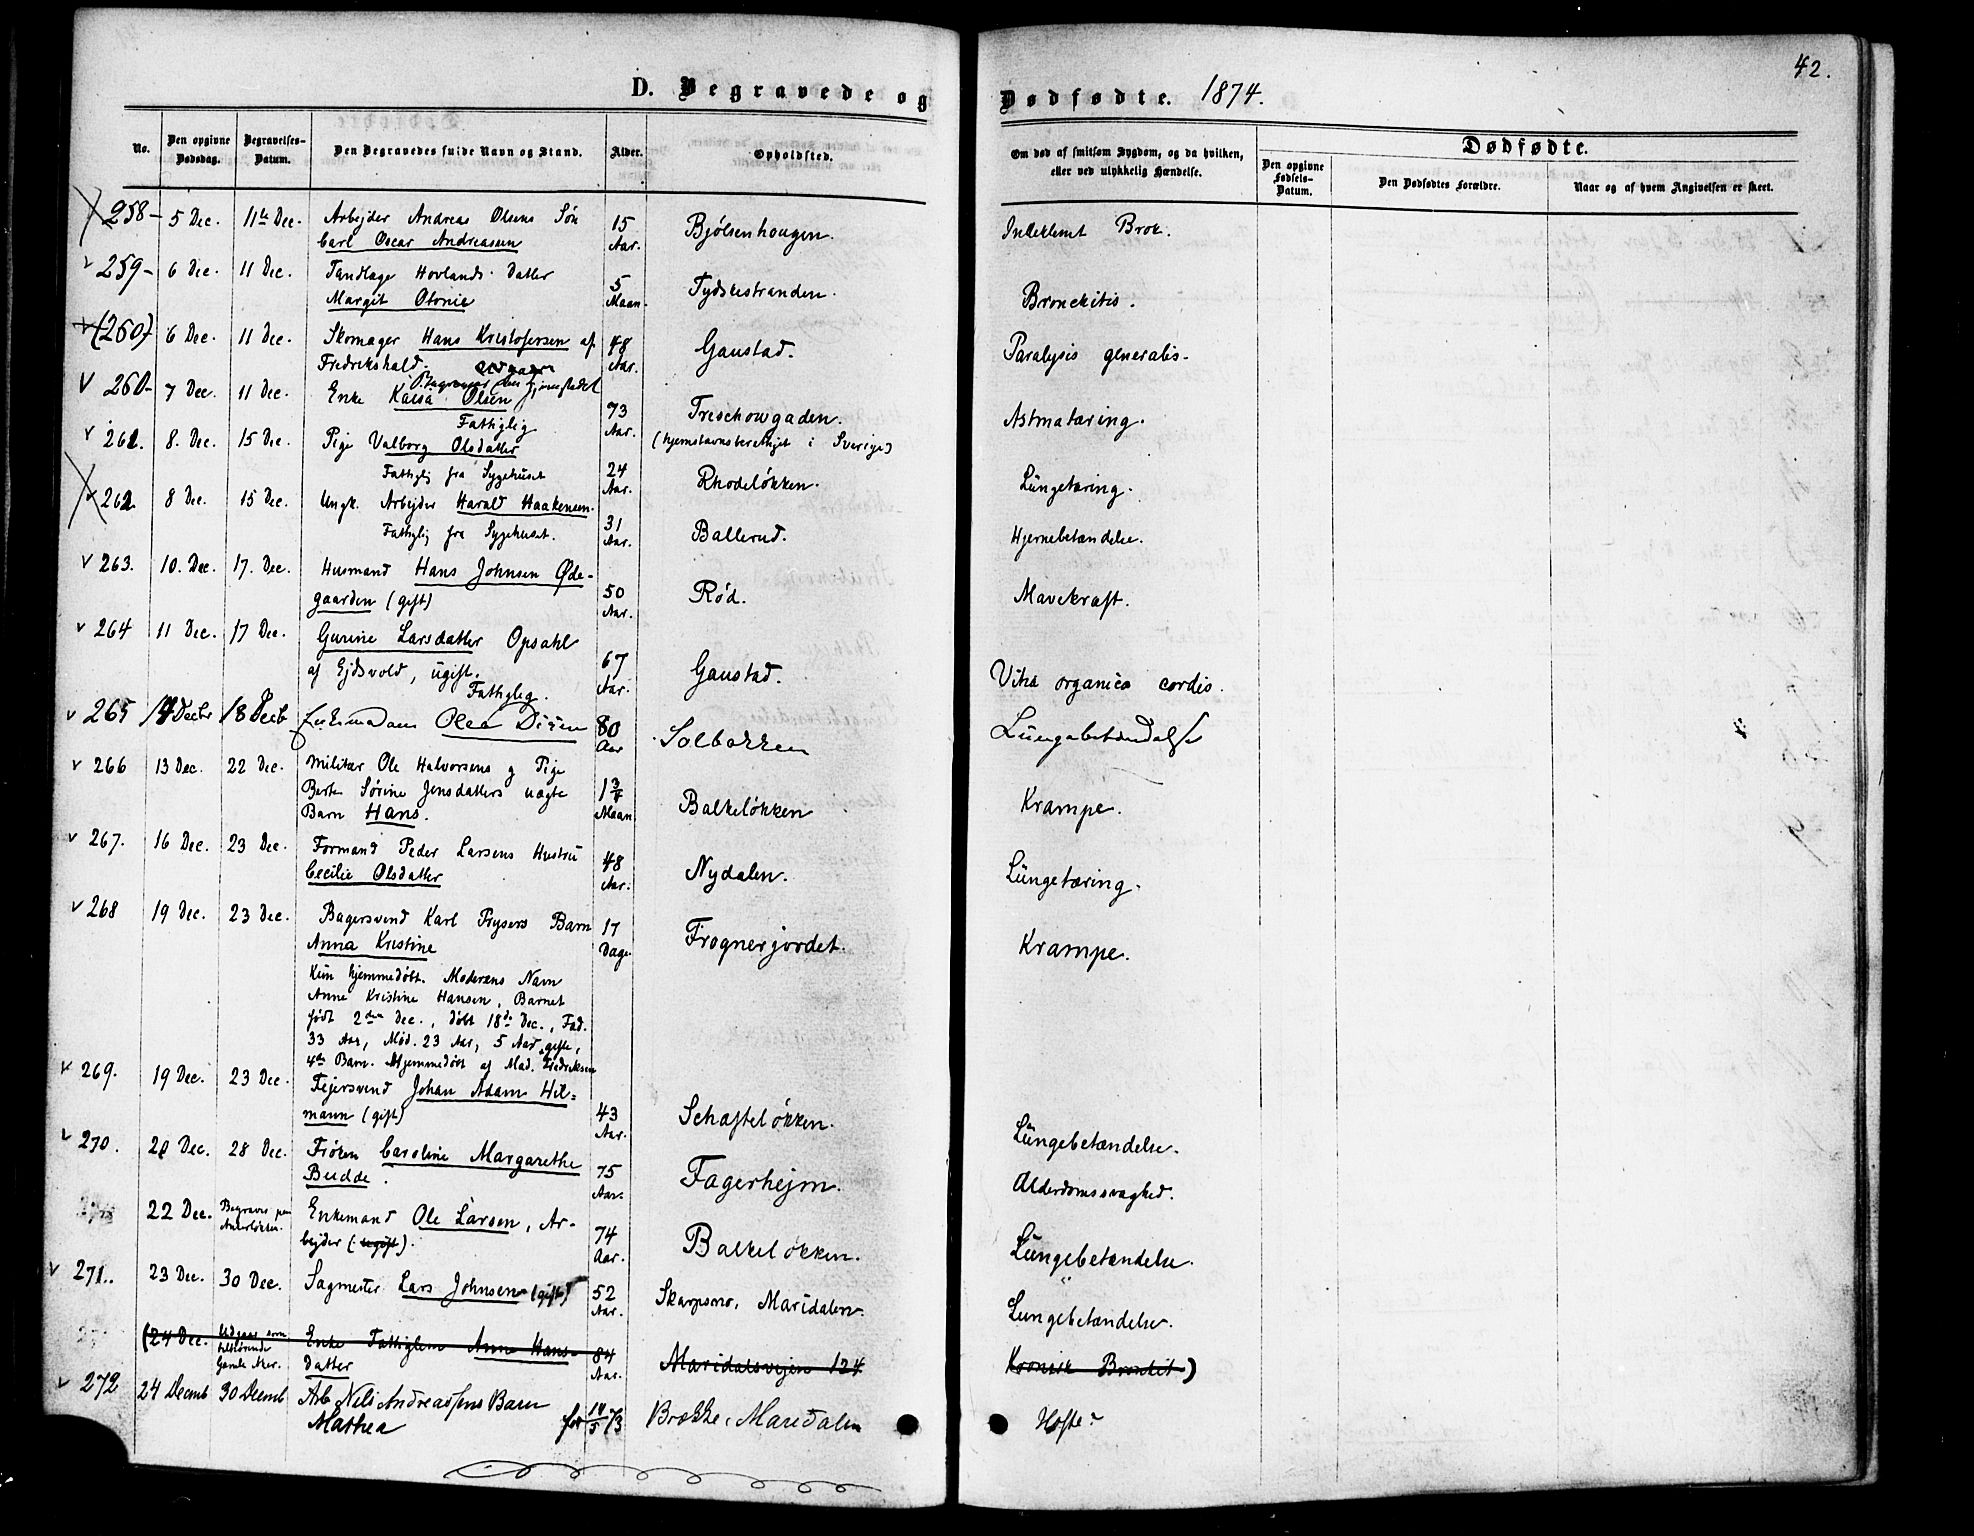 42.
D. Begravede og Dødfødte. 1874.
No. Den opgivne Dødsdag. Begravelses-Datum. Den Begravedes fulde Navn og Stand. Alder. Opholdsted. Om død af smitsom Sygdom, og da hvilken, eller ved ulykkelig Hændelse. Dødfødte.
Den opgivne Fødsels-Datum. Den Dødfødtes Forældre. Naar og af hvem Angivelsen er skeet.
258- 5 Dec. 11te Dec. Arbejder Andreas Olsens Søn 15 Bjølsenhougen. Indeklemt Brok.
Carl Oscar Andreasen Aar.
259- 6 Dec. 11 Dec. Tandlæge Hovlands Datter 5 Tydskestranden. Bronchitis.
Margit Otonie Maan.
(260) 6 Dec. 11 Dec. Skomager Hans Kristofersen af 48 Gaustad. Paralysis generalis.
Fredrikshald. Aar.
Begraves paa Hjemstedet
260- 7 Dec. 11 Dec. Enke Kaisa Olsen 73 Treschowgaden. Astmatæring.
Fattiglig Aar. (hjemstavnsberettiget i Sverige)
261. 8. Dec. 15 Dec. Pige Valborg Olsdatter 24 Rhodeløkken. Lungetæring.
Fattiglig fra Sygehuset Aar.
262 8 Dec. 15 Dec. Ungk. Arbejder Harald Haakensen. 31 Ballerud. Hjernebetændelse.
Fattiglig fra Sygehuset. Aar.
263. 10. Dec. 17. Dec. Husmand Hans Johnsen Øde- 50 Rød. Mavekræft.
gaarden (gift) Aar.
264 11 Dec. 17 Dec. Gurine Larsdatter Opsahl 67 Gaustad. Vitia organica cordis.
af Ejdsvold, ugift. Aar.
Fattiglig.
265 14 Decbr 18 Decb Olea 80 Solbakken Lungebetændelse
Aar
266 13 Dec. 22 Dec. Militær Ole Halvorsens og Pige 1 3/4 Balkeløkken Krampe.
Berte Sørine Jensdatters uægte Maan
Barn Hans.
267. 16 Dec. 23 Dec. Formand Peder Larsens Hustru 48 Nydalen. Lungetæring.
Cecilie Olsdatter Aar.
268 19 Dec. 23 Dec. Bagersvend Karl Prysers Barn 17 Frognerjordet. Krampe.
Anna Kristine Dage
Kun hjemmedøbt. Moderens Navn
Anne Kristine Hansen, Barnet
født 2den Dec., døbt 18de Dec., Fad.
33 Aar, Mod. 23 Aar, 5 Aar gifte,
4de Barn. Hjemmedøbt af Mad. Fredriksen
269. 19 Dec. 23 Dec. Fejersvend Johan Adam Hil= 43 Schafteløkken. Lungebetændelse.
mann (gift) Aar.
270. 20 Dec. 28 Dec. Frøken Caroline Margarethe 75 Fagerhejm. Alderdomssvaghed.
Budde. Aar.
22 Dec. Begraves paa Enkemand Ole Larsen, Ar- 74 Balkeløkken. Lungebetændelse.
bejder (ugift). Aar.
271. 23 Dec. 30 Dec. Sagmester Lars Johnsen (gift) 52 Skarpsno, Maridalen. Lungebetændelse.
Aar.
(24 Dec. Udgaar som tilhørende Gamle Aker. Enke Fattiglem Anne Hans- 84 Maridalsvejen 124 Kronisk Bronkit)
datter Aar.
272 24 Decemb 30 Decemb Arb. Nils Andreassens Barn Brække, Maridalen Hoste
Mathea 10/5 73